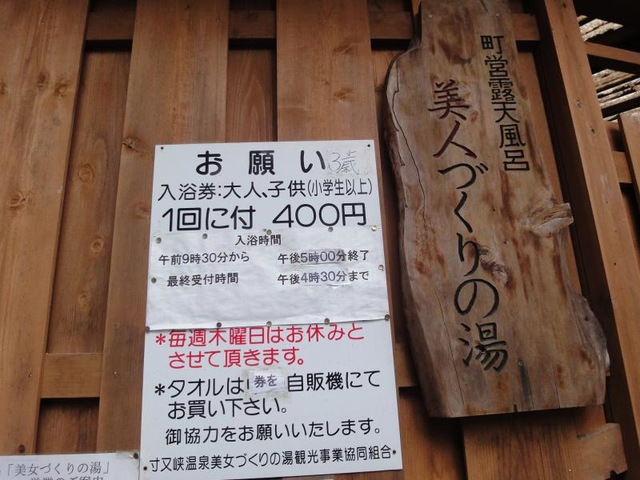 お願い
3歳
入浴券:大人、子供(小学生以上)
1回に付 400円
入浴時間
午前9時30分から 午後5時00分終了
最終受付時間 午後4時30分まで
*毎週木曜日はお休みと
させて頂きます。
*タオルは券を自販機にて
お買い下さい。
御協力をお願いいたします。
寸又峡温泉美女づくりの湯観光事業協同組合
町営露天風呂
美人づくりの湯
「美女づくりの湯」